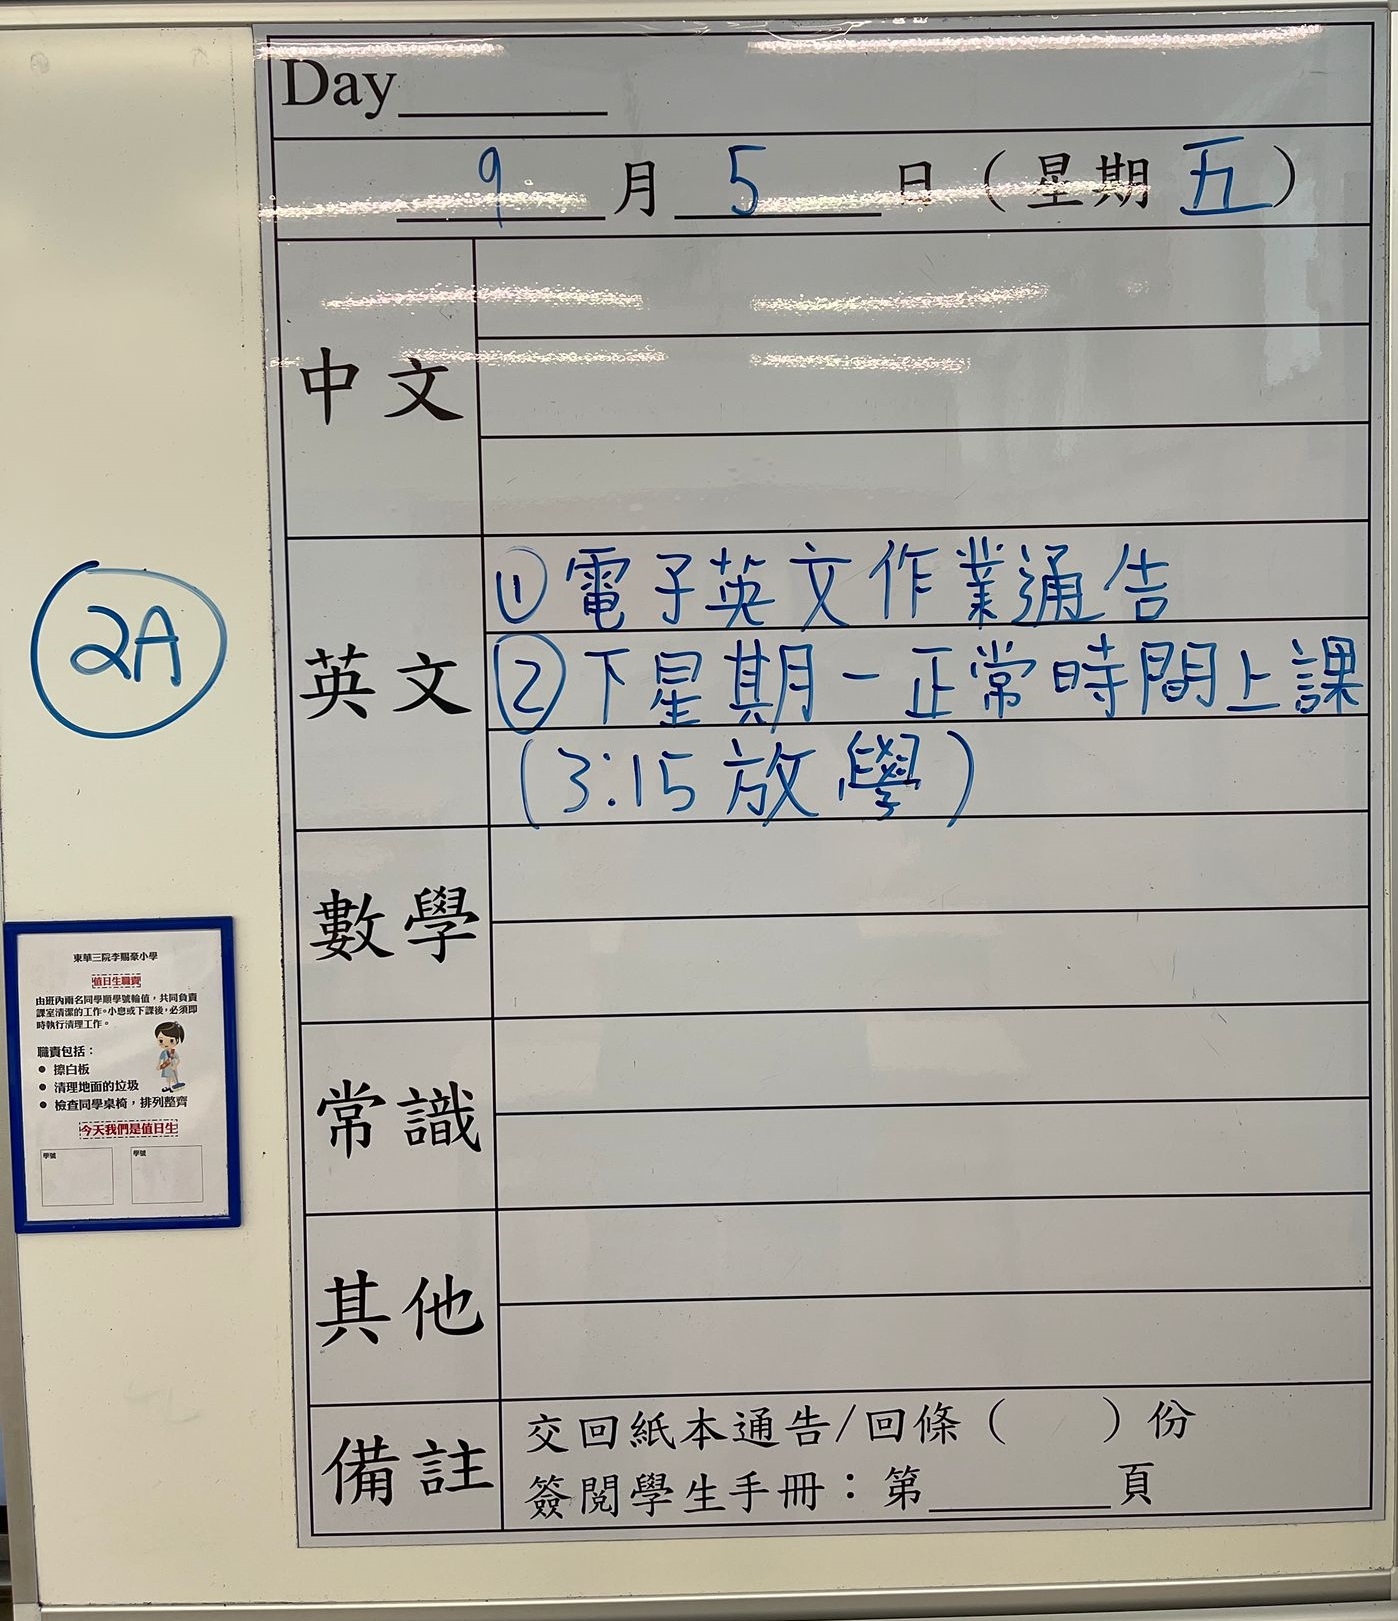 Day
9月5日（星期五）
中文
英文
①電子英文作業通告
②下星期一正常時間上課
(3:15放學)
數學
常識
其他
備註
交回紙本通告/回條（ ）份
簽閱學生手冊：第 頁
2A
東華三院李賜豪小學
值日生職責
由班內兩名同學順學號輪值，共同負責
課室清潔的工作。小息或下課後，必須即
時執行清理工作。
職責包括：
● 擦白板
● 清理地面的垃圾
● 檢查同學桌椅，排列整齊
今天我們是值日生
學號 學號